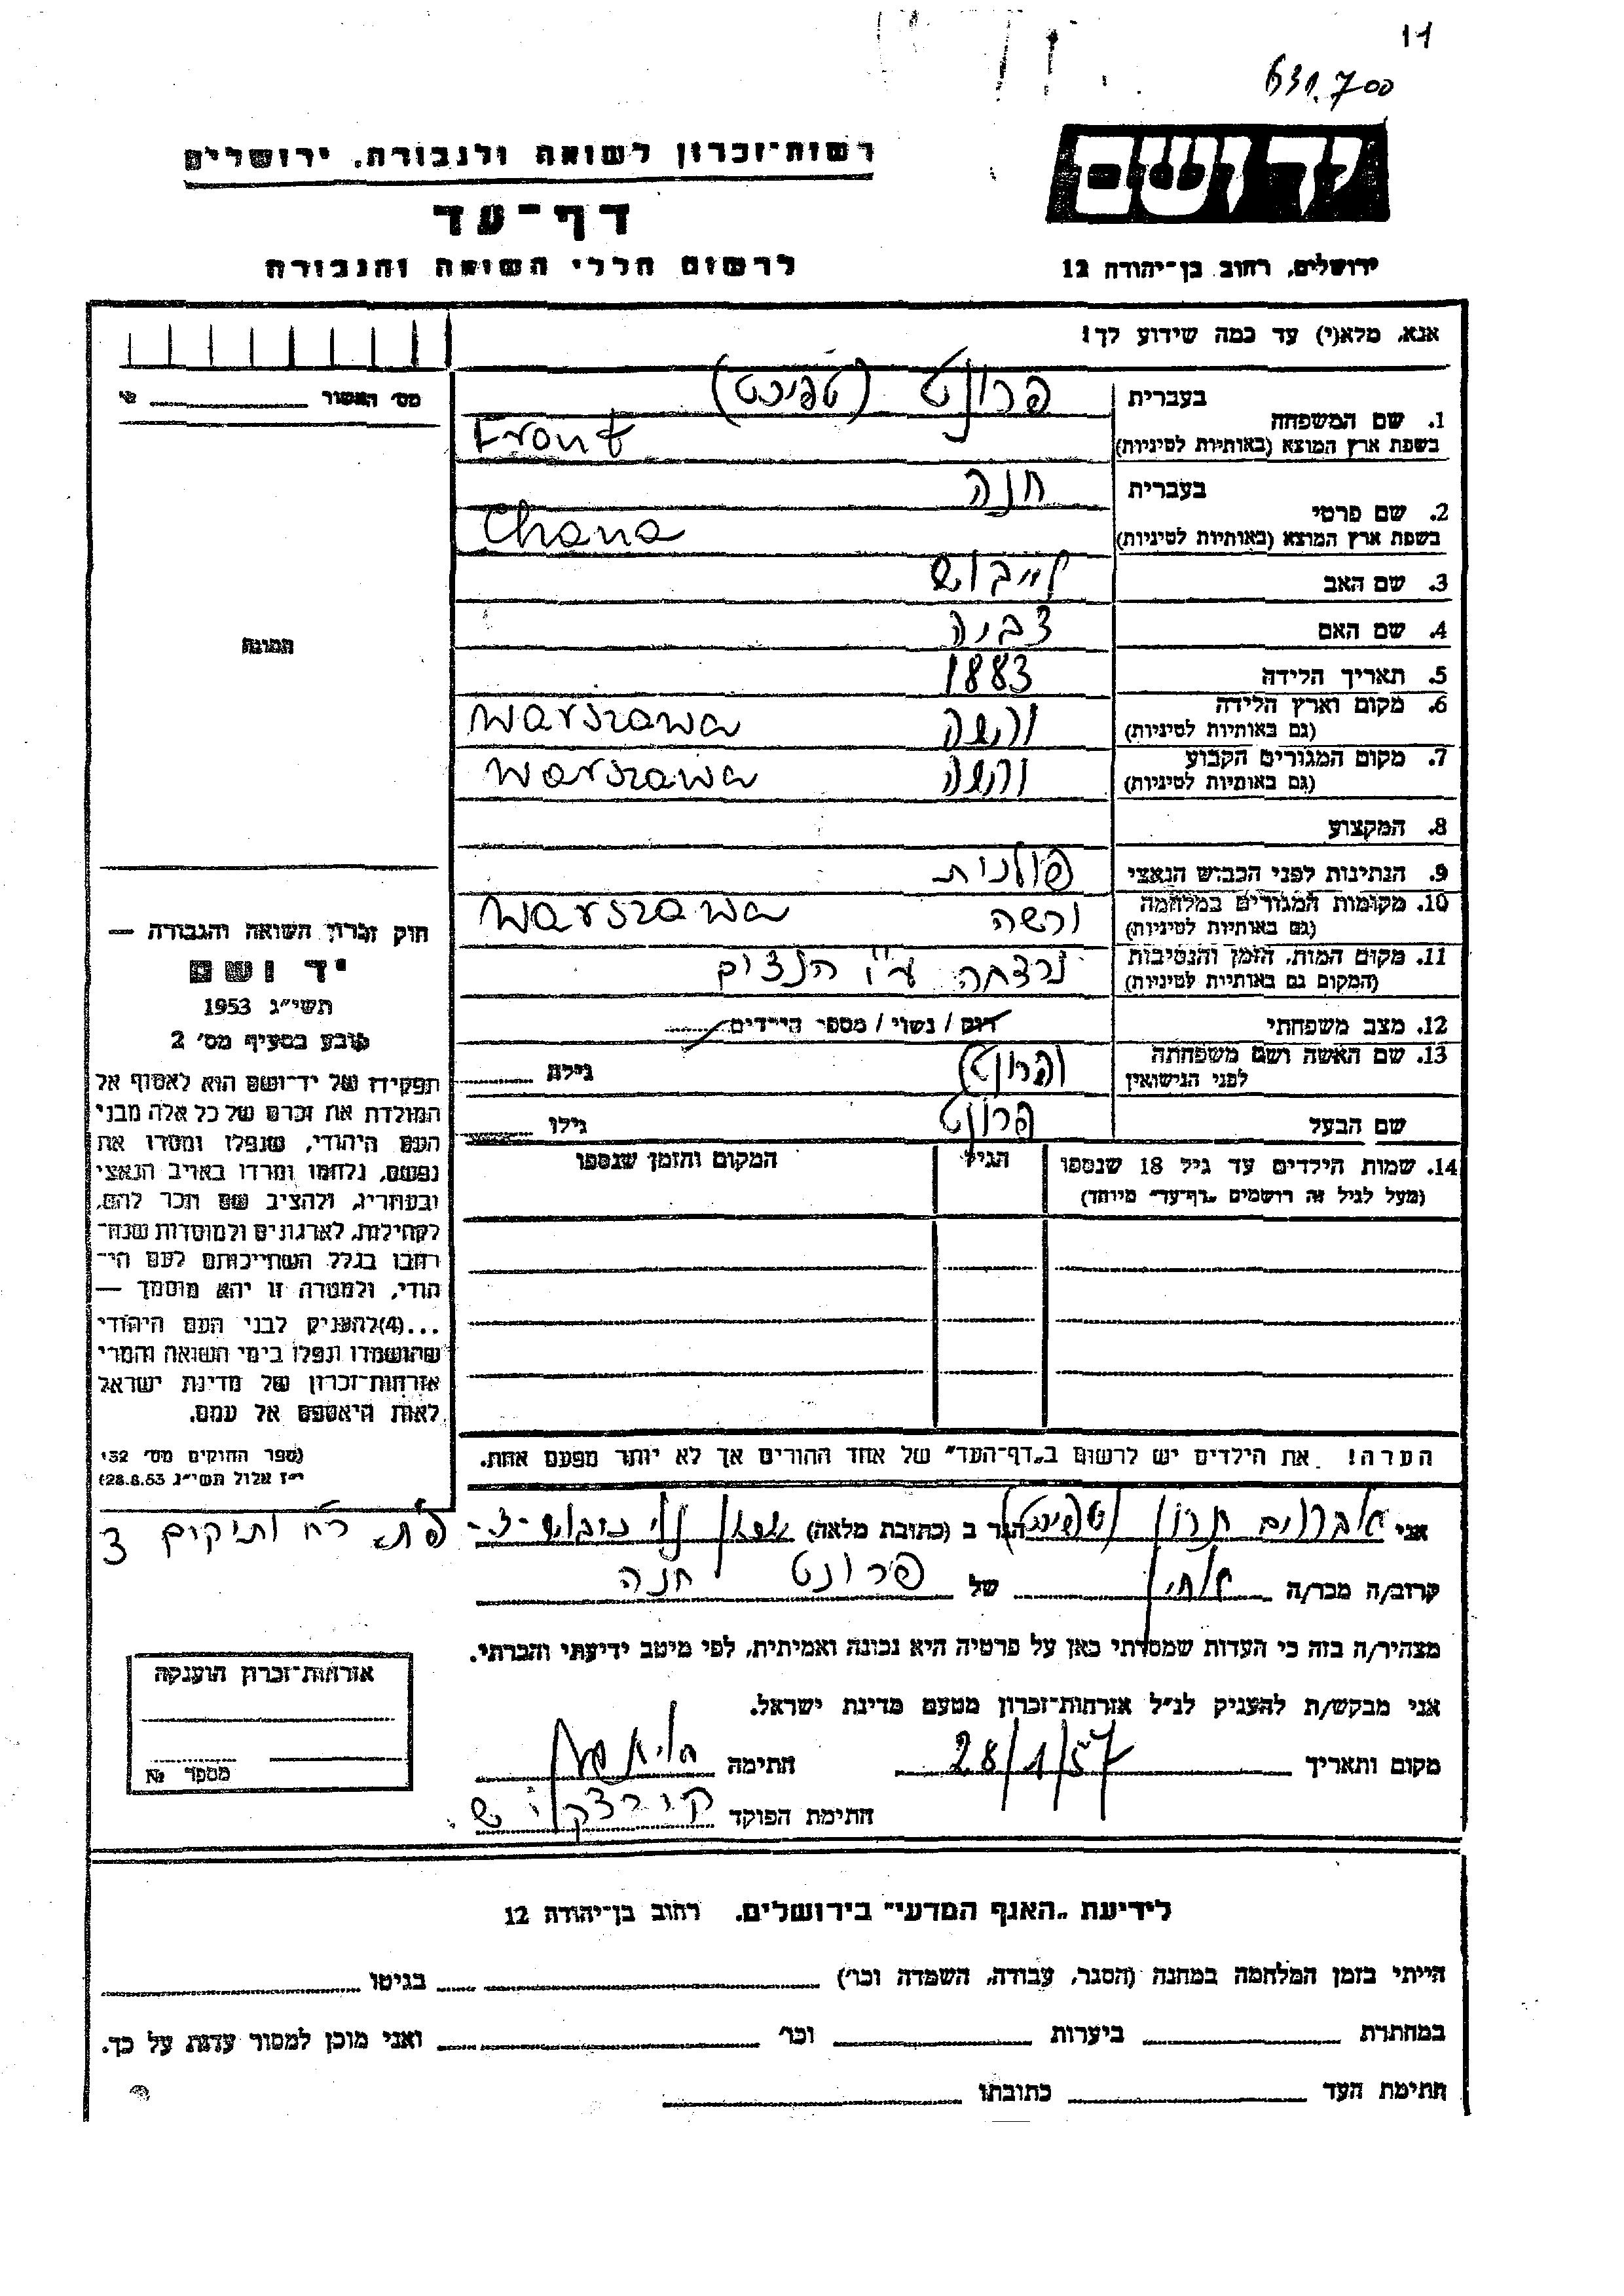 11
631.700
רשות־זכרון לשואה ולגבורה, ירושלים
יד ושם
דף־עד
לרשום חללי השואה והגבורה
ירושלים, רחוב בן־יהודה 12
אנא, מלא(י) עד כמה שידוע לך!
מס' האשור
בעברית פרונט
1. שם המשפחה
בשפת ארץ המוצא (באותיות לטיניות) Front
בעברית חנה
2. שם פרטי
בשפת ארץ המוצא (באותיות לטיניות) Chana
3. שם האב לייבוש
4. שם האם צביה
תמונה
5. תאריך הלידה 1883
6. מקום וארץ הלידה
(גם באותיות לטיניות) ורשה Warszawa
7. מקום המגורים הקבוע
(גם באותיות לטיניות) ורשה Warszawa
8. המקצוע
9. הנתינות לפני הכבוש הנאצי פולנית
10. מקומות המגורים במלחמה
(גם באותיות לטיניות) ורשה Warszawa
11. מקום המות, הזמן והנסיבות
(המקום גם באותיות לטיניות) נרצחה ע"י הנצים
12. מצב משפחתי רווק / נשוי / מספר הילדים
13. שם האשה ושם משפחתה
לפני הנישואין גילה
שם הבעל פרונט גילו
14. שמות הילדים עד גיל 18 שנספו הגיל המקום והזמן שנספו
(מעל לגיל זה רושמים „דף־עד" מיוחד)
חוק זכרון השואה והגבורה —
יד ושם
תשי"ג 1953
קובע בסעיף מס' 2
תפקידו של יד־ושם הוא לאסוף אל
המולדת את זכרם של כל אלה מבני
העם היהודי, שנפלו ומסרו את
נפשם, נלחמו ומרדו באויב הנאצי
ובעוזריו, ולהציב שם וזכר להם,
לקהילות, לארגונים ולמוסדות שנח־
רבו בגלל השתייכותם לעם הי־
הודי, ולמטרה זו יהא מוסמך —
...(4)להעניק לבני העם היהודי
שהושמדו ונפלו בימי השואה והמרי
אזרחות־זכרון של מדינת ישראל
לאות היאספם אל עמם.
(ספר החוקים מס' 132
י"ז אלול תשי"ג 28.8.53)
הערה! את הילדים יש לרשום ב„דף־העד" של אחד ההורים אך לא יותר מפעם אחת.
אני הגר ב (כתובת מלאה)
קרוב/ה מכר/ה של פרונט חנה
מצהיר/ה בזה כי העדות שמסרתי כאן על פרטיה היא נכונה ואמיתית, לפי מיטב ידיעתי והכרתי.
אני מבקש/ת להעניק לנ"ל אזרחות־זכרון מטעם מדינת ישראל.
מקום ותאריך 28/1/57 חתימה
חתימת הפוקד
אזרחות־זכרון הוענקה
מספר №
לידיעת „האגף המדעי" בירושלים. רחוב בן־יהודה 12
הייתי בזמן המלחמה במחנה (הסגר, עבודה, השמדה וכו') בגיטו
במחתרת ביערות וכו' ואני מוכן למסור עדות על כך.
חתימת העד כתובתו